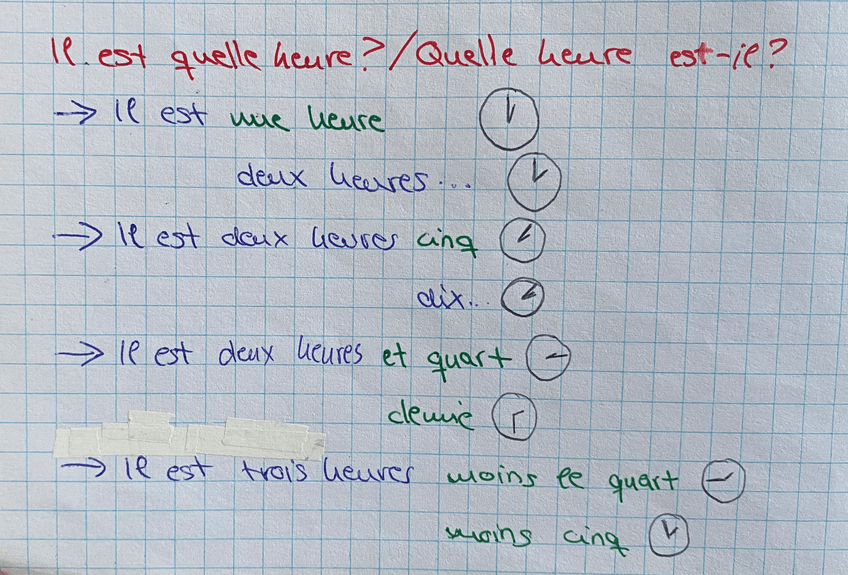 Il est quelle heure? / Quelle heure est-il?
→ Il est une heure
deux heures...
→ Il est deux heures cinq
dix...
→ Il est deux heures et quart
demie
→ Il est trois heures moins le quart
moins cinq